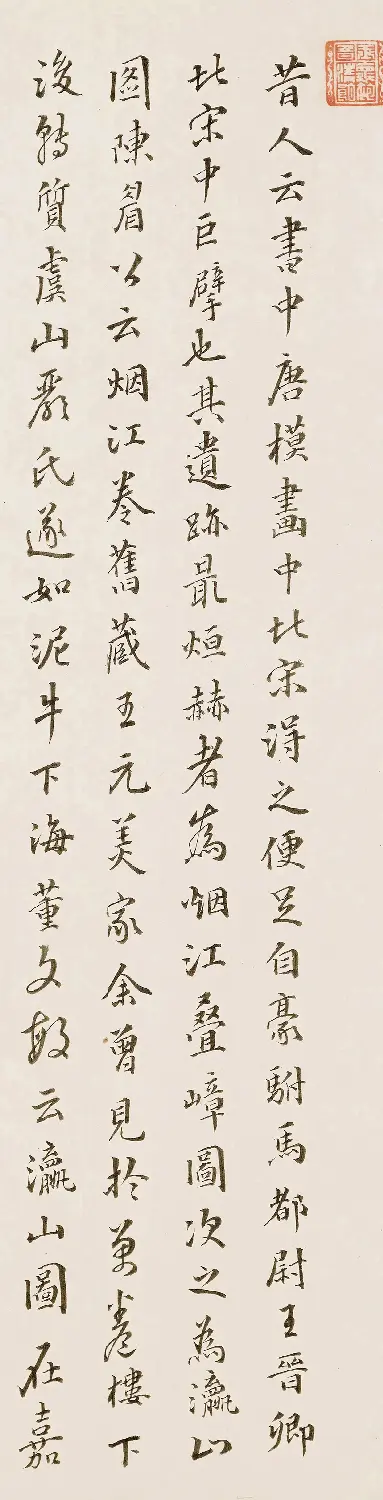 昔人云書中唐模畫中北宋得之便足自豪駙馬都尉王晉卿
北宋中巨擘也其遺跡最烜赫者為烟江疊嶂圖次之為瀛山
圖陳眉公云烟江卷舊藏王元美家余曾見於萬卷樓下
後轉質虞山嚴氏遂如泥牛下海董文敏云瀛山圖在嘉